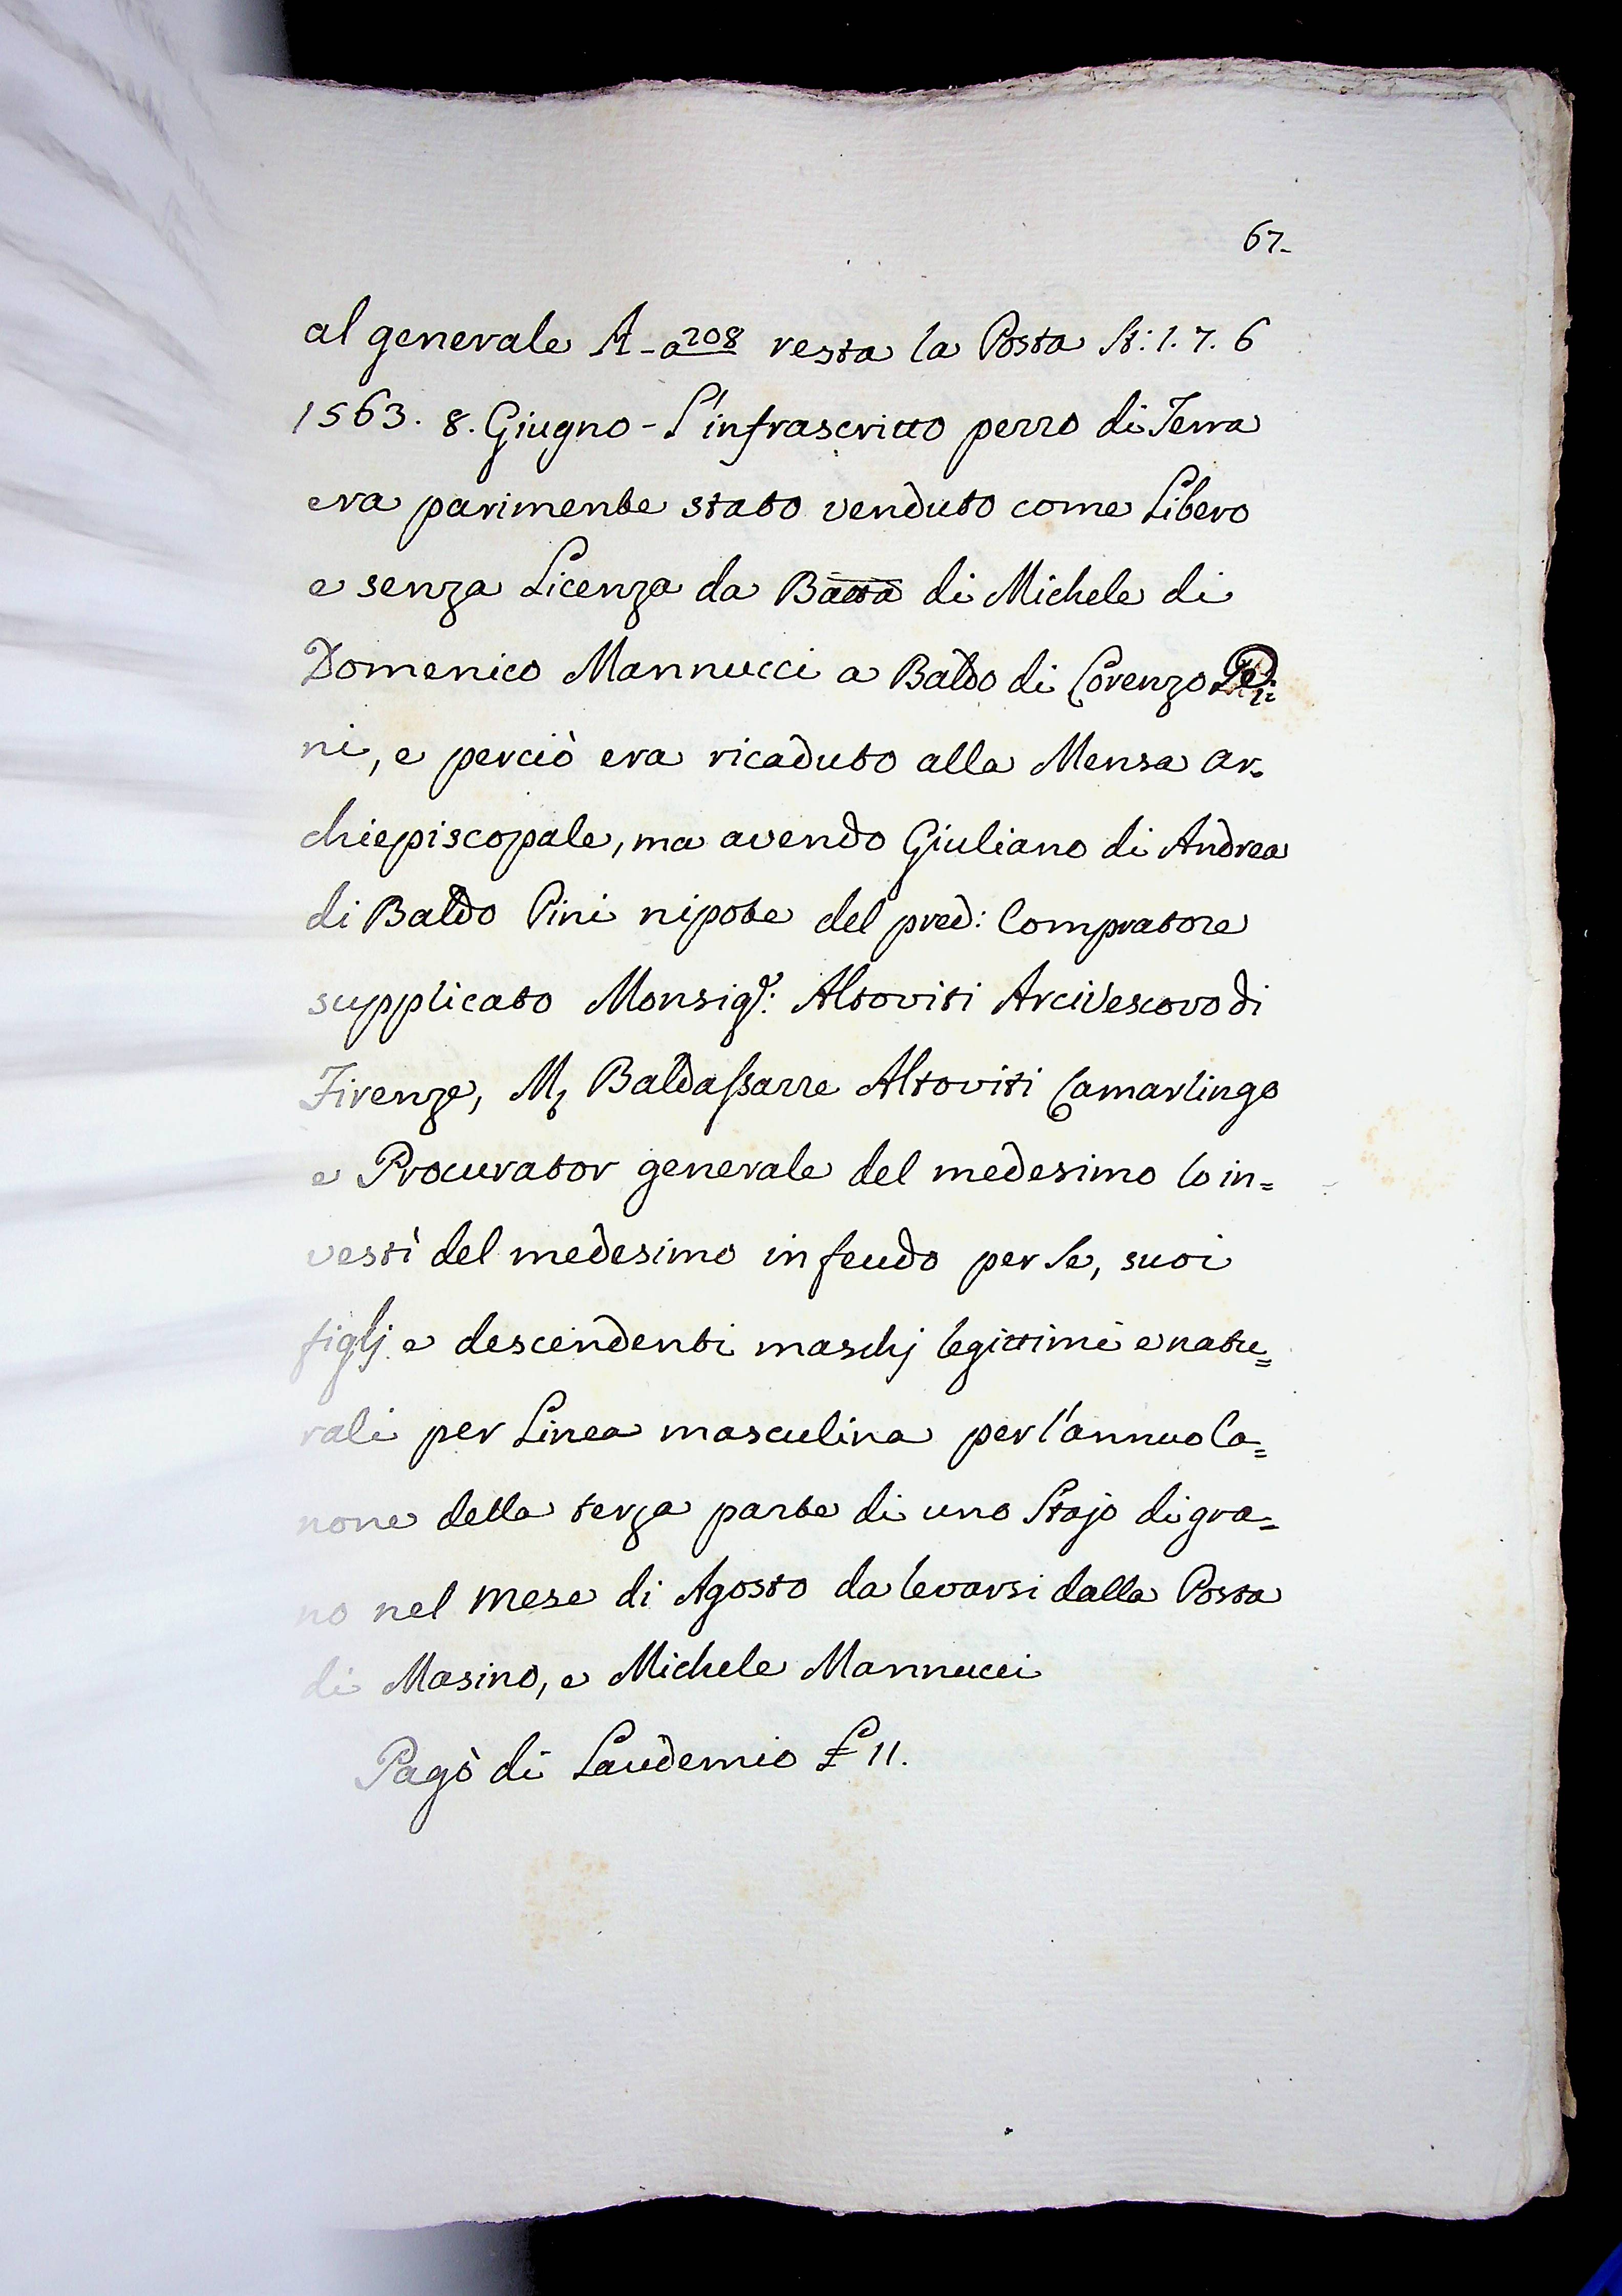 67.
al generale A-a 208 resta la Posta St: 1. 7. 6
1563. 8. Giugno - L'infrascritto pezzo di Terra
era parimente stato venduto come Libero
e senza Licenza da Batta di Michele di
Domenico Mannucci a Baldo di Lorenzo
ni, e perciò era ricaduto alla Mensa Ar=
chiepiscopale, ma avendo Giuliano di Andrea
di Baldo Pini nipote del pred: Compratore
supplicato Monsigr: Altoviti Arcivescovo di
Firenze, Mr Baldassarre Altoviti Camarlingo
e Procurator generale del medesimo lo in=
vestì del medesimo in feudo per se, suoi
figlj e descendenti maschj legittimi e natu=
rali per Linea masculina per l'annuo Ca=
none della terza parte di uno Stajo di gra=
no nel mese di Agosto da levarsi dalla Posta
di Masino, e Michele Mannucci
Pagò di Laudemio £ 11.